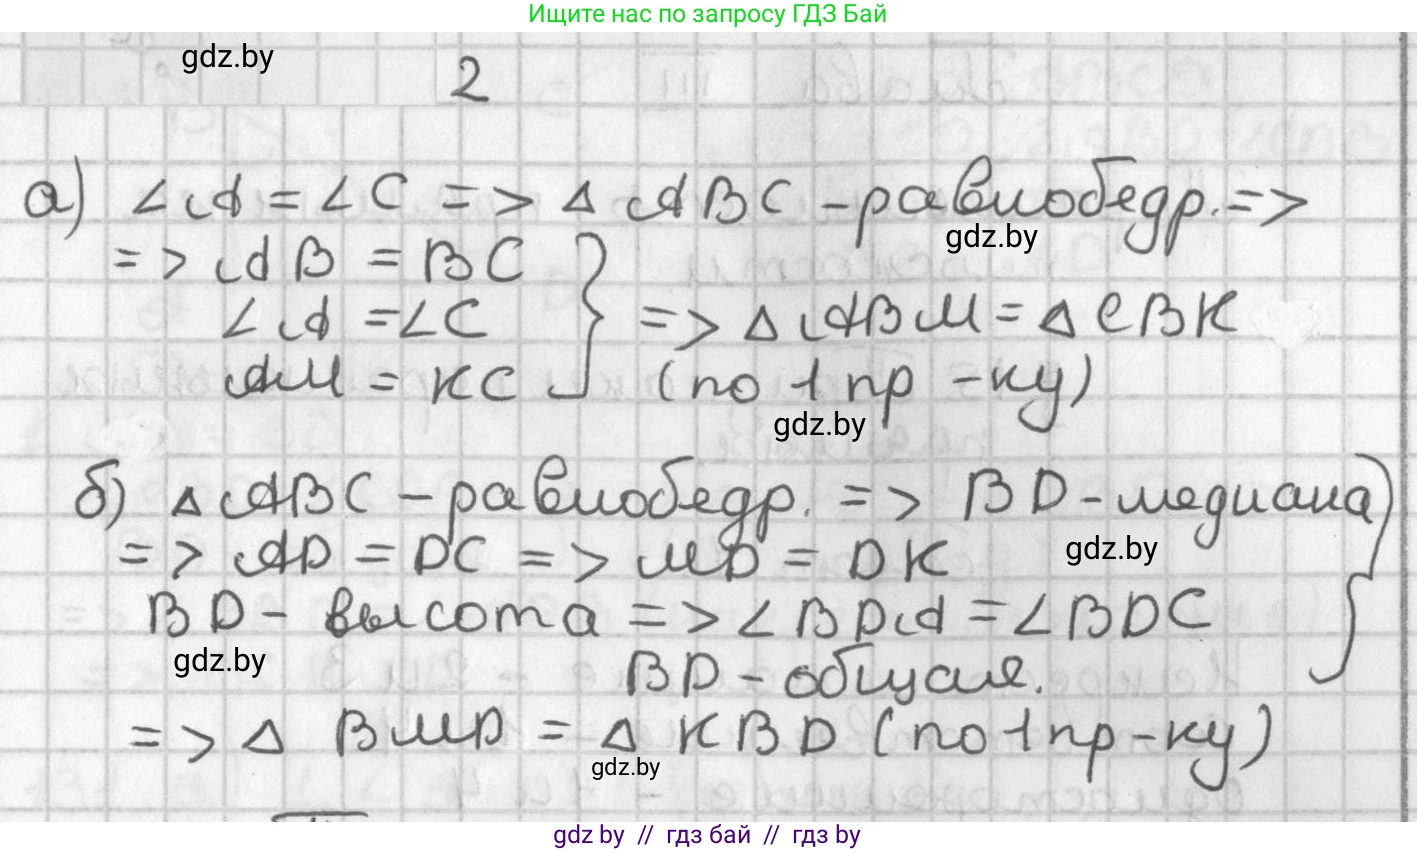 Ищите нас по запросу ГДЗ Бай
gdz.by
2
а) ∠A = ∠C => Δ ABC - равнобедр. =>
gdz.by
=> AB = BC
∠A = ∠C } => Δ ABM = Δ CBK
AM = KC (по 1 пр-ку)
gdz.by
б) Δ ABC - равнобедр. => BD - медиана
=> AD = DC => MD = DK
gdz.by
BD - высота => ∠BDA = ∠BDC
gdz.by
BD - общая.
=> Δ BMD = Δ KBD (по 1 пр-ку)
gdz.by
gdz.by // гдз бай // гдз by